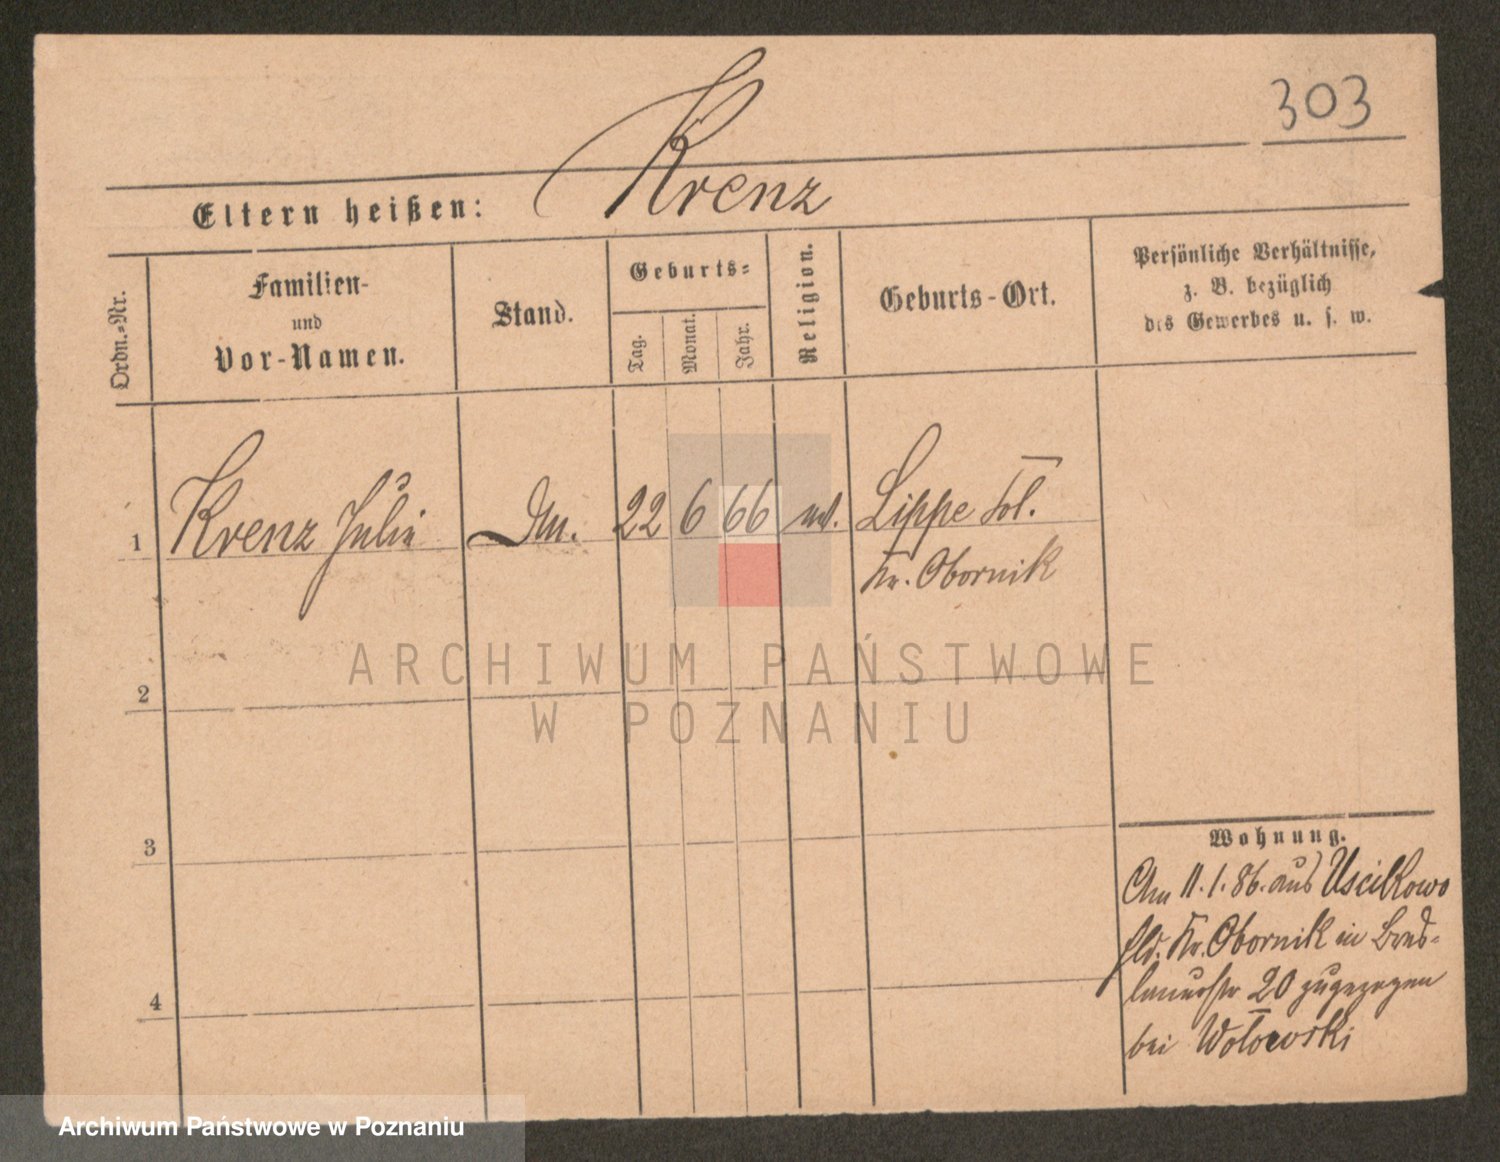 303
Krenz
Eltern heißen:
Ordn.-Nr.
Familien-
und
Vor-Namen.
Stand.
Geburts-
Tag.
Monat.
Jahr.
Religion.
Geburts-Ort.
Persönliche Verhältnisse,
z. B. bezüglich
des Gewerbes u. s. w.
1 Krenz Julie 22 6 66 ev. Lippe Kol.
Kr. Obornik
ARCHIWUM PAŃSTWOWE
W POZNANIU
2
3
4
Wohnung.
Am 11.1.86. aus Uscikowo
Kr. Obornik in Bres-
lauerstr 20 zugezogen
bei Wotowski
Archiwum Państwowe w Poznaniu